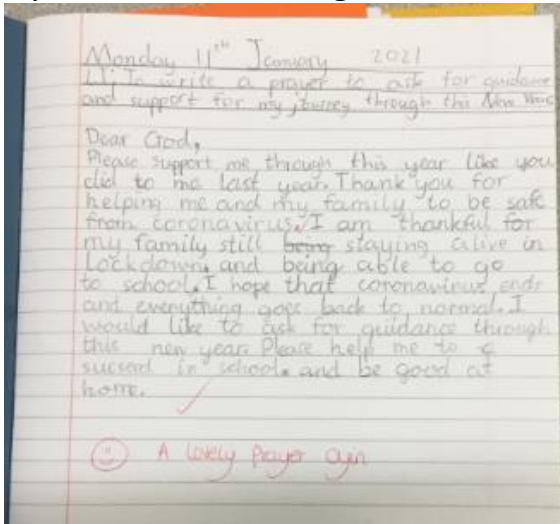 Monday 11th January 2021
LI: To write a prayer to ask for guidance
and support for my journey through this New Year
Dear God,
Please support me through this year like you
did to me last year. Thank you for
helping me and my family to be safe
from coronavirus. I am thankful for
my family still being staying alive in
Lockdown. and being able to go
to school. I hope that coronavirus ends
and everything goes back to normal. I
would like to ask for guidance through
this new year. Please help me to
sucsard in school. and be good at
home.
A lovely Prayer